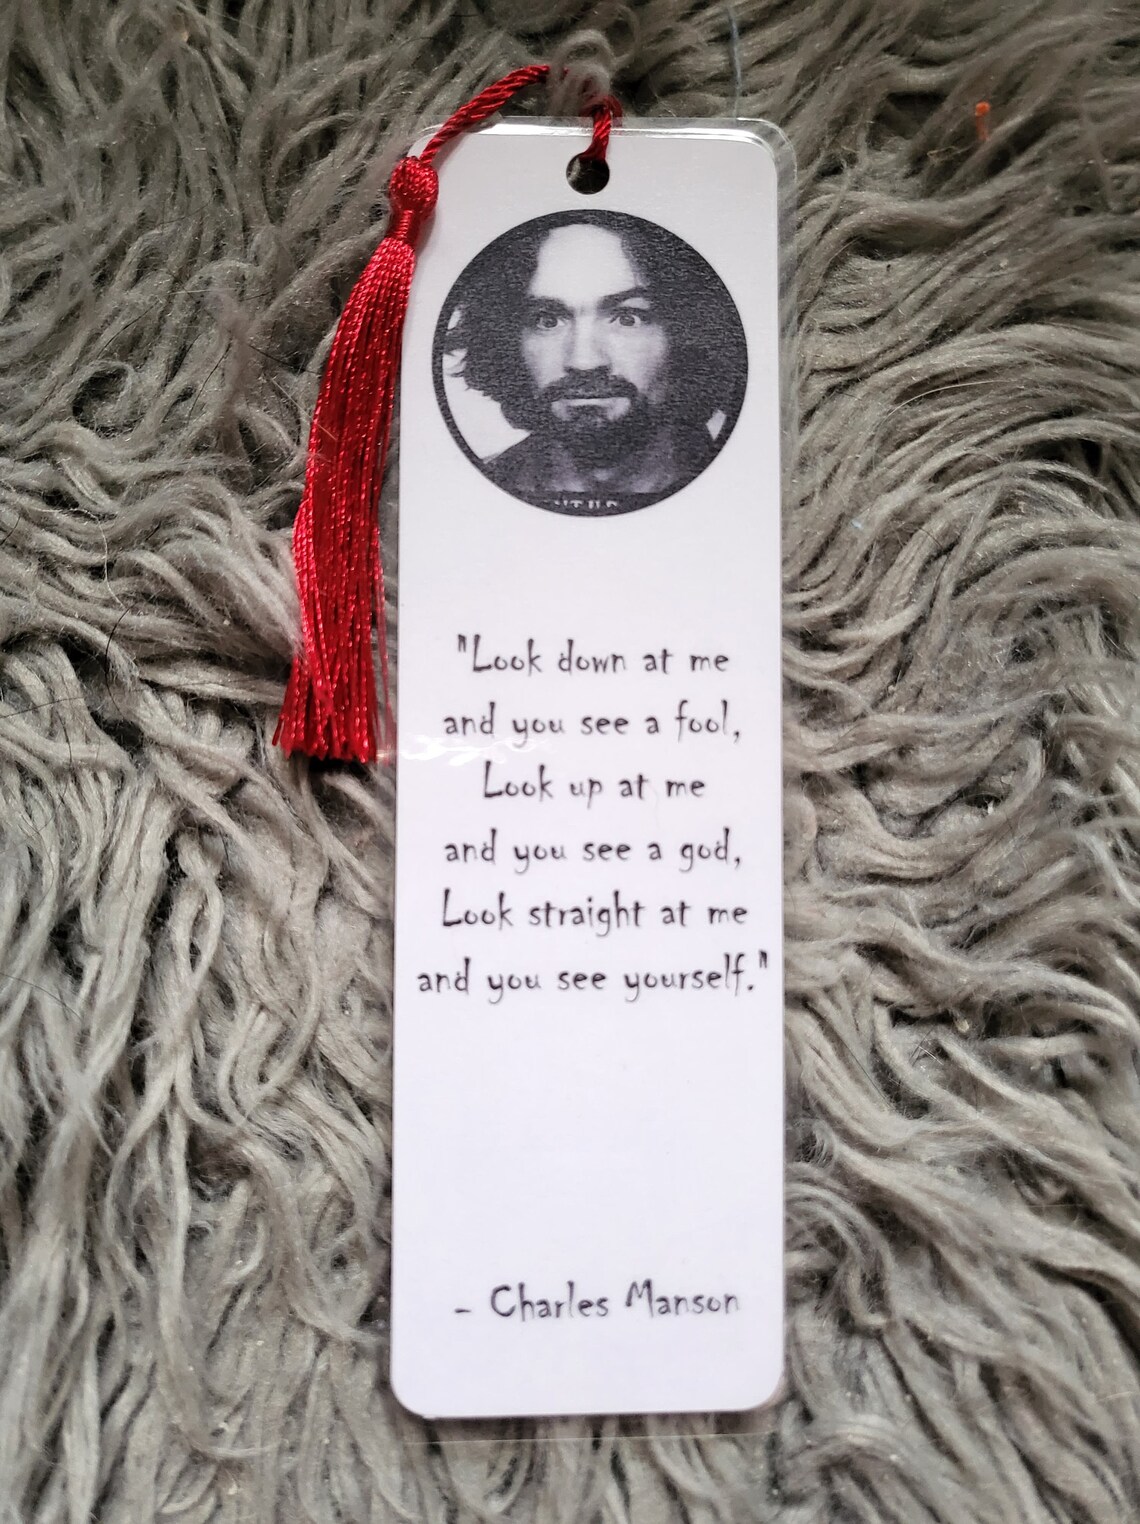 "Look down at me
and you see a fool,
Look up at me
and you see a god,
Look straight at me
and you see yourself."
- Charles Manson